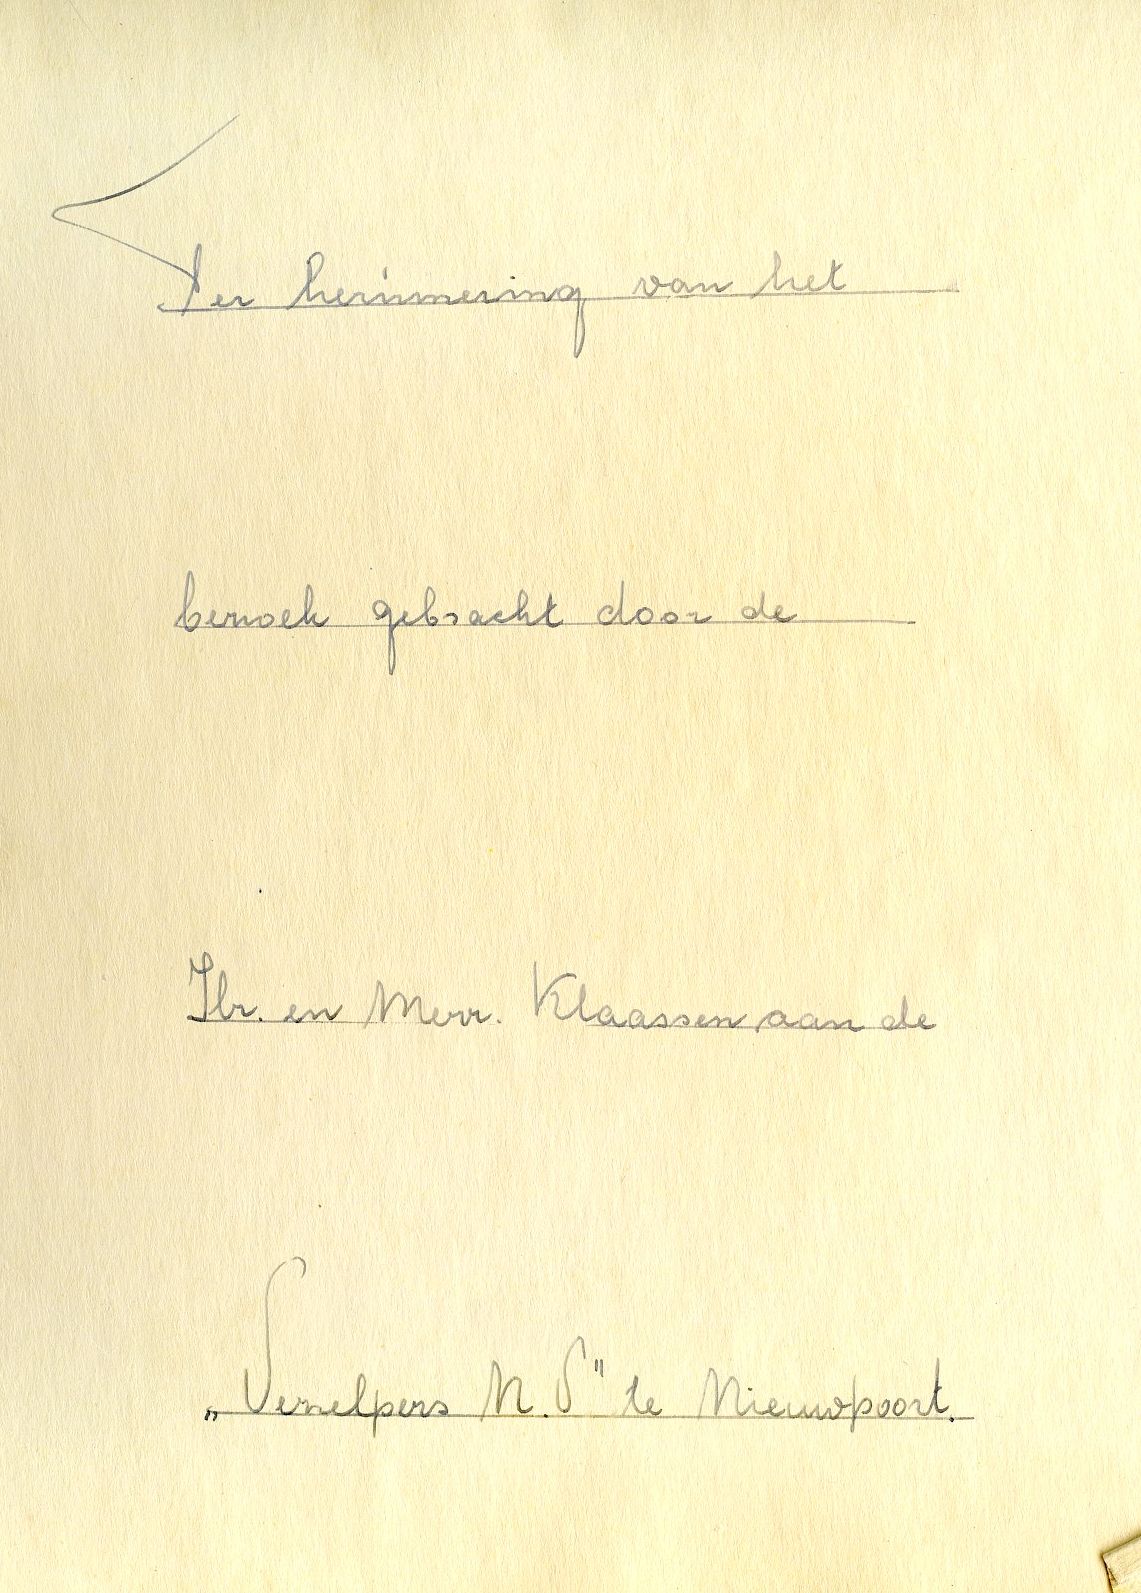 Ter herinnering van het
bezoek gebracht door de
Hr. en Mevr. Klaassen aan de
„Vezelpers N.V" te Nieuwpoort.